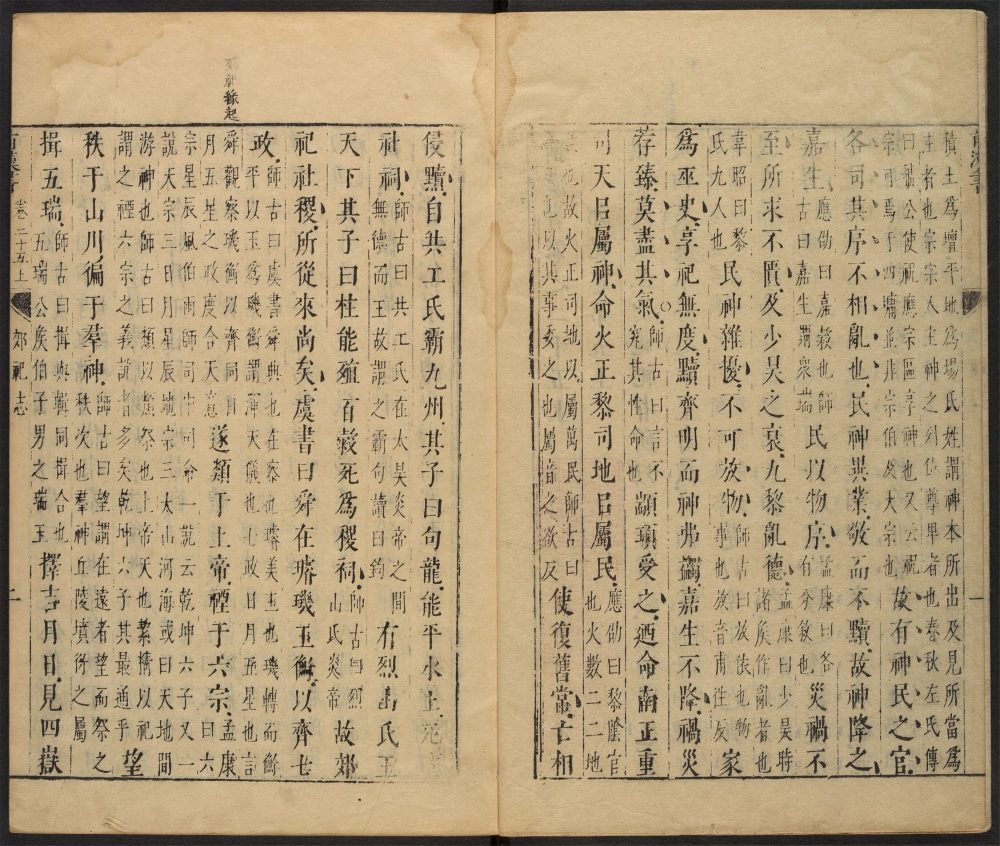 前漢書
積土為壇平地為場氏姓謂神本所出及見所當為
主者也宗宗人主神之列位尊卑者也春秋左氏傳
曰虢公使祝應宗區享神也又云祝
宗用馬于四墉並非宗伯及大宗也故有神民之官
各司其序不相亂也民神異業敬而不黷故神降之
嘉生應劭曰嘉穀也師
古曰嘉生謂衆瑞民以物序孟康曰各
有分敘也災禍不
至所求不匱及少昊之衰九黎亂德孟康曰少昊時
諸矦作亂者也
韋昭曰黎
氏九人也民神雜擾不可放物師古曰放依也物
事也放音甫往反家
為巫史享祀無度黷齊明而神弗蠲嘉生不降禍災
荐臻莫盡其氣師古曰言不
究其性命也顓頊受之迺命南正重
司天㠯屬神命火正黎司地㠯屬民應劭曰黎陰官
也火數二二地
也故火正司地以屬萬民師古曰
也以其事委之也屬音之欲反使復舊常亡相
神緣起
侵黷自共工氏霸九州其子曰句龍能平水土死為
社祠師古曰共工氏在太昊炎帝之間
無德而王故謂之霸句讀曰鉤有烈山氏王
天下其子曰柱能殖百穀死為稷祠師古曰烈
山氏炎帝故郊
祀社稷所從來尚矣虞書曰舜在璿璣玉衡以齊七
政師古曰虞書舜典也在察也璿美玉也璣轉而衡
平以玉為璣衡謂渾天儀也七政日月五星也言
舜觀察璣衡以齊同日
月五星之政度合天意遂類于上帝禋于六宗孟康
曰六
宗星辰風伯雨師司中司命一說云乾坤六子又一
說天宗三日月星辰地宗三太山河海或曰天地間
游神也師古曰類以類祭也上帝天也絜精以祀
謂之禋六宗之義說者多矣乾坤六子其最通乎望
秩于山川徧于羣神師古曰望謂在遠者望而祭之
秩次也羣神丘陵墳衍之屬
揖五瑞師古曰揖與輯同揖合也
五瑞公矦伯子男之瑞玉擇吉月日見四嶽
卷二十五上
郊祀志